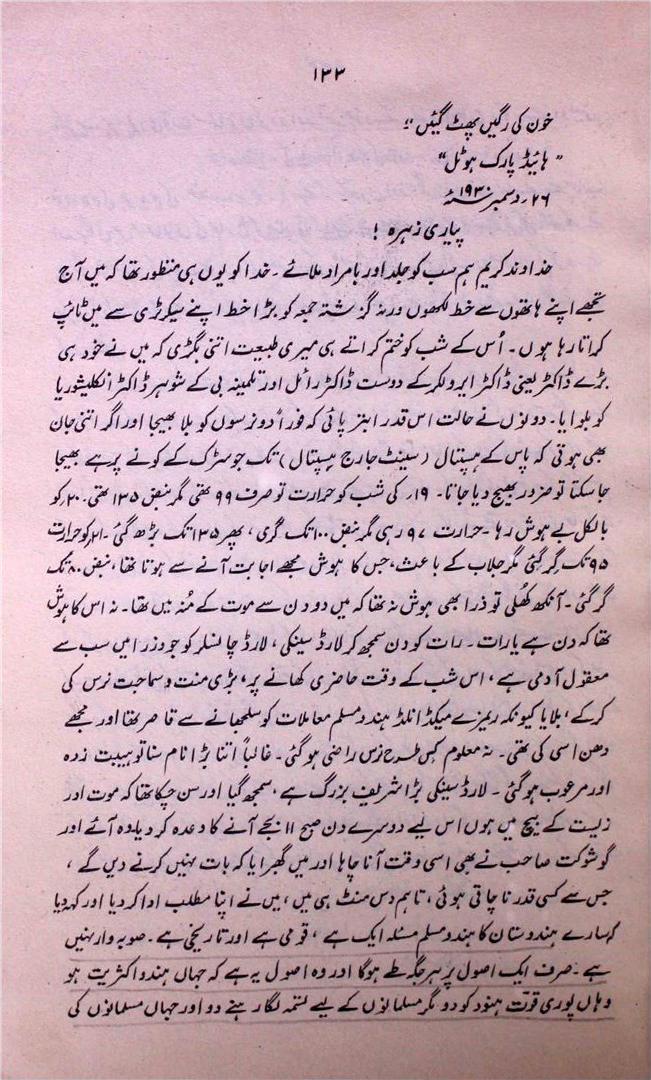 ۱۳۳
خون کی رگیں پھٹ گئیں"
"ہائیڈ پارک ہوٹل"
۲۶ر دسمبر ۱۹۳۰ء
پیاری زہرہ!
خداوند کریم ہم سب کو جلد اور بامراد ملائے۔ خدا کو یوں ہی منظور تھا کہ میں آج
تجھے اپنے ہاتھوں سے خط لکھوں ورنہ گزشتہ جمعہ کو بڑا خط اپنے سیکرٹری سے میں ٹائپ
کراتا رہا ہوں۔ اُس کے شب کو ختم کراتے ہی میری طبیعت اتنی بگڑی کہ میں نے خود ہی
بڑے ڈاکٹر یعنی ڈاکٹر ایرولکر کے دوست ڈاکٹر رائل اور تلمینہ بی کے شوہر ڈاکٹر انکلیشوریا
کو بلوایا۔ دونوں نے حالت اس قدر ابتر پائی کہ فوراً دو نرسوں کو بلا بھیجا اور اگر اتنی جان
بھی ہوتی کہ پاس کے ہسپتال (سینٹ جارج ہسپتال) تک جو سڑک کے کونے پر ہے بھیجا
جا سکتا تو ضرور بھیج دیا جاتا۔ ۱۹ر کی شب کو حرارت تو صرف ۹۹ تھی مگر نبض ۱۳۵ تھی۔ ۲۰ر کو
بالکل بے ہوش رہا۔ حرارت ۹۷ رہی مگر نبض ۱۰۰ تک گری، پھر ۱۳۵ تک بڑھ گئی۔ ۲۱ر کو حرارت
۹۵ تک گر گئی مگر جلاب کے باعث، جس کا ہوش مجھے اجابت آنے سے ہوتا تھا، نبض ۸۰ تک
گر گئی۔ آنکھ کھلی تو ذرا بھی ہوش نہ تھا کہ میں دو دن سے موت کے مُنہ میں تھا۔ نہ اس کا ہوش
تھا کہ دن ہے یا رات۔ رات کو دن سمجھ کر لارڈ سینکی، لارڈ چانسلر کو جو وزرا میں سب سے
معقول آدمی ہے، اس شب کے وقت حاضری کھانے پر، بڑی منت و سماجت نرس کی
کرکے، بلایا کیونکہ ریمزے میکڈانلڈ ہندو مسلم معاملات کو سلجھانے سے قاصر تھا اور مجھے
دھن اسی کی تھی۔ نہ معلوم کس طرح نرس راضی ہو گئی۔ غالباً اتنا بڑا نام سنا تو ہیبت زدہ
اور مرعوب ہو گئی۔ لارڈ سینکی بڑا شریف بزرگ ہے، سمجھ گیا اور سن چکا تھا کہ موت اور
زیست کے بیچ میں ہوں اس لیے دوسرے دن صبح ۱۱ بجے آنے کا وعدہ کر دیا۔ وہ آئے اور
گو شوکت صاحب نے بھی اسی وقت آنا چاہا اور میں گھبرایا کہ بات نہیں کرنے دیں گے،
جس سے کسی قدر ناچاقی ہوئی، تاہم دس منٹ ہی میں، میں نے اپنا مطلب ادا کر دیا اور کہہ دیا
کہ سارے ہندوستان کا ہندو مسلم مسئلہ ایک ہے، قومی ہے اور تاریخی ہے۔ صوبہ وار نہیں
ہے۔ صرف ایک اصول پر ہر جگہ طے ہوگا اور وہ اصول یہ ہے کہ جہاں ہندو اکثریت ہو
وہاں پوری قوت ہنود کو دو مگر مسلمانوں کے لیے تسمہ لگا رہنے دو اور جہاں مسلمانوں کی